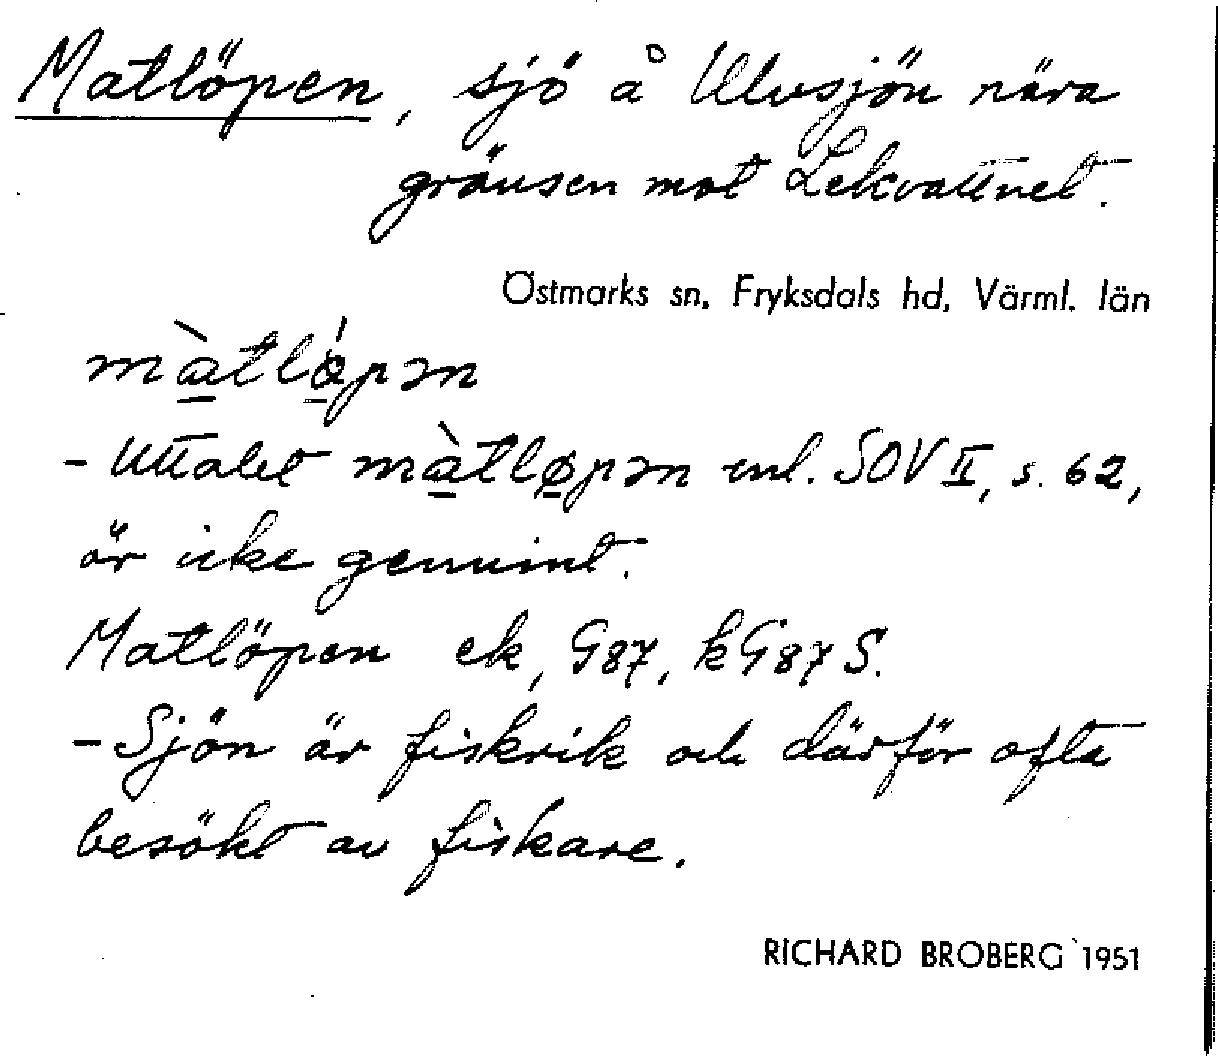 Matlöpen, sjö å Ulvsjön nära
gränsen mot Lekvattnet.
Östmarks sn, Fryksdals hd, Värml. län
màtlǿpən
- Uttalet màtløpən enl. SOV II, s. 62,
är icke genuint.
Matlöpen ek, G87, kG87 S.
- Sjön är fiskrik och därför ofta
besökt av fiskare.
RICHARD BROBERG 1951